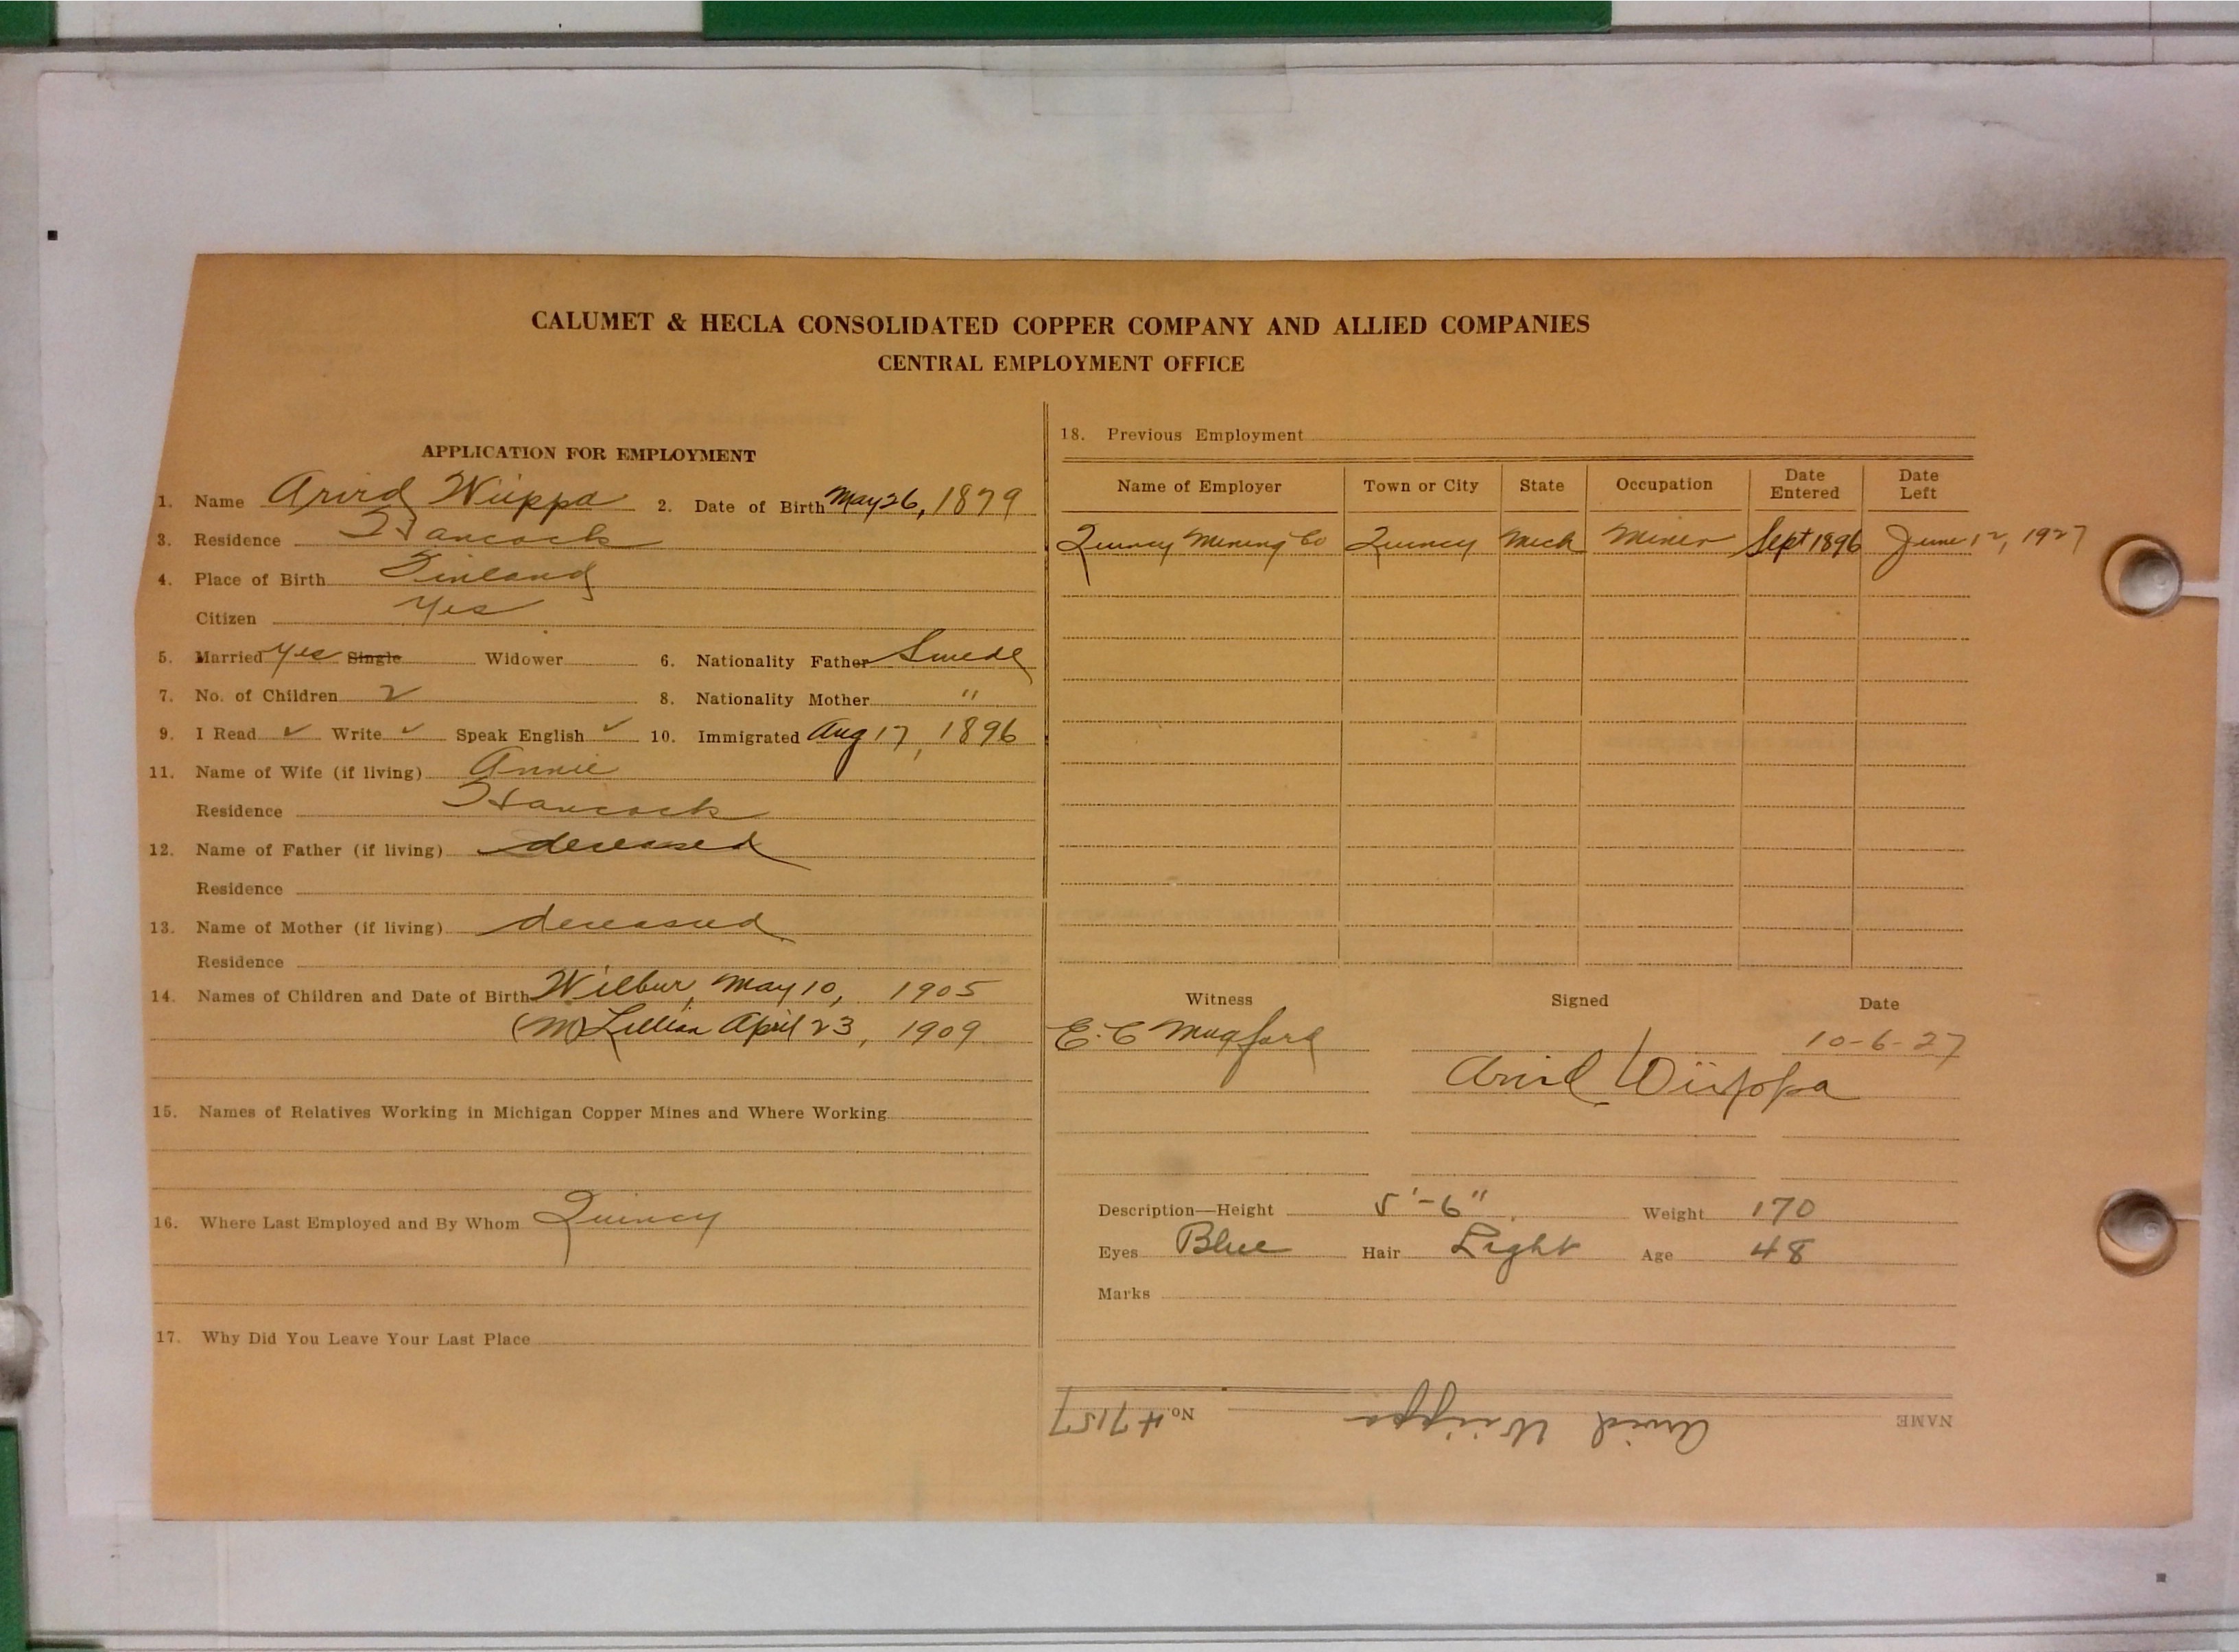 CALUMET & HECLA CONSOLIDATED COPPER COMPANY AND ALLIED COMPANIES
CENTRAL EMPLOYMENT OFFICE
APPLICATION FOR EMPLOYMENT
1. Name Arvid Wiippa 2. Date of Birth May 26, 1879
3. Residence Hancock
4. Place of Birth Finland
Citizen Yes
5. Married Yes Single Widower 6. Nationality Father Swede
7. No. of Children 2 8. Nationality Mother "
9. I Read ✓ Write ✓ Speak English ✓ 10. Immigrated Aug 17, 1896
11. Name of Wife (if living) Annie
Residence Hancock
12. Name of Father (if living) deceased
Residence
13. Name of Mother (if living) deceased
Residence
14. Names of Children and Date of Birth Wilbur, May 10, 1905
(M) Lillian April 23, 1909
15. Names of Relatives Working in Michigan Copper Mines and Where Working
16. Where Last Employed and By Whom Quincy
17. Why Did You Leave Your Last Place
18. Previous Employment
Name of Employer Town or City State Occupation Date Entered Date Left
Quincy Mining Co Quincy Mich Miner Sept 1896 June 12, 1927
Witness Signed Date
E. C Mugford 10-6-27
Arvid Wiippa
Description—Height 5'-6" Weight 170
Eyes Blue Hair Light Age 48
Marks
NAME Arvid Wiippa No. 47157